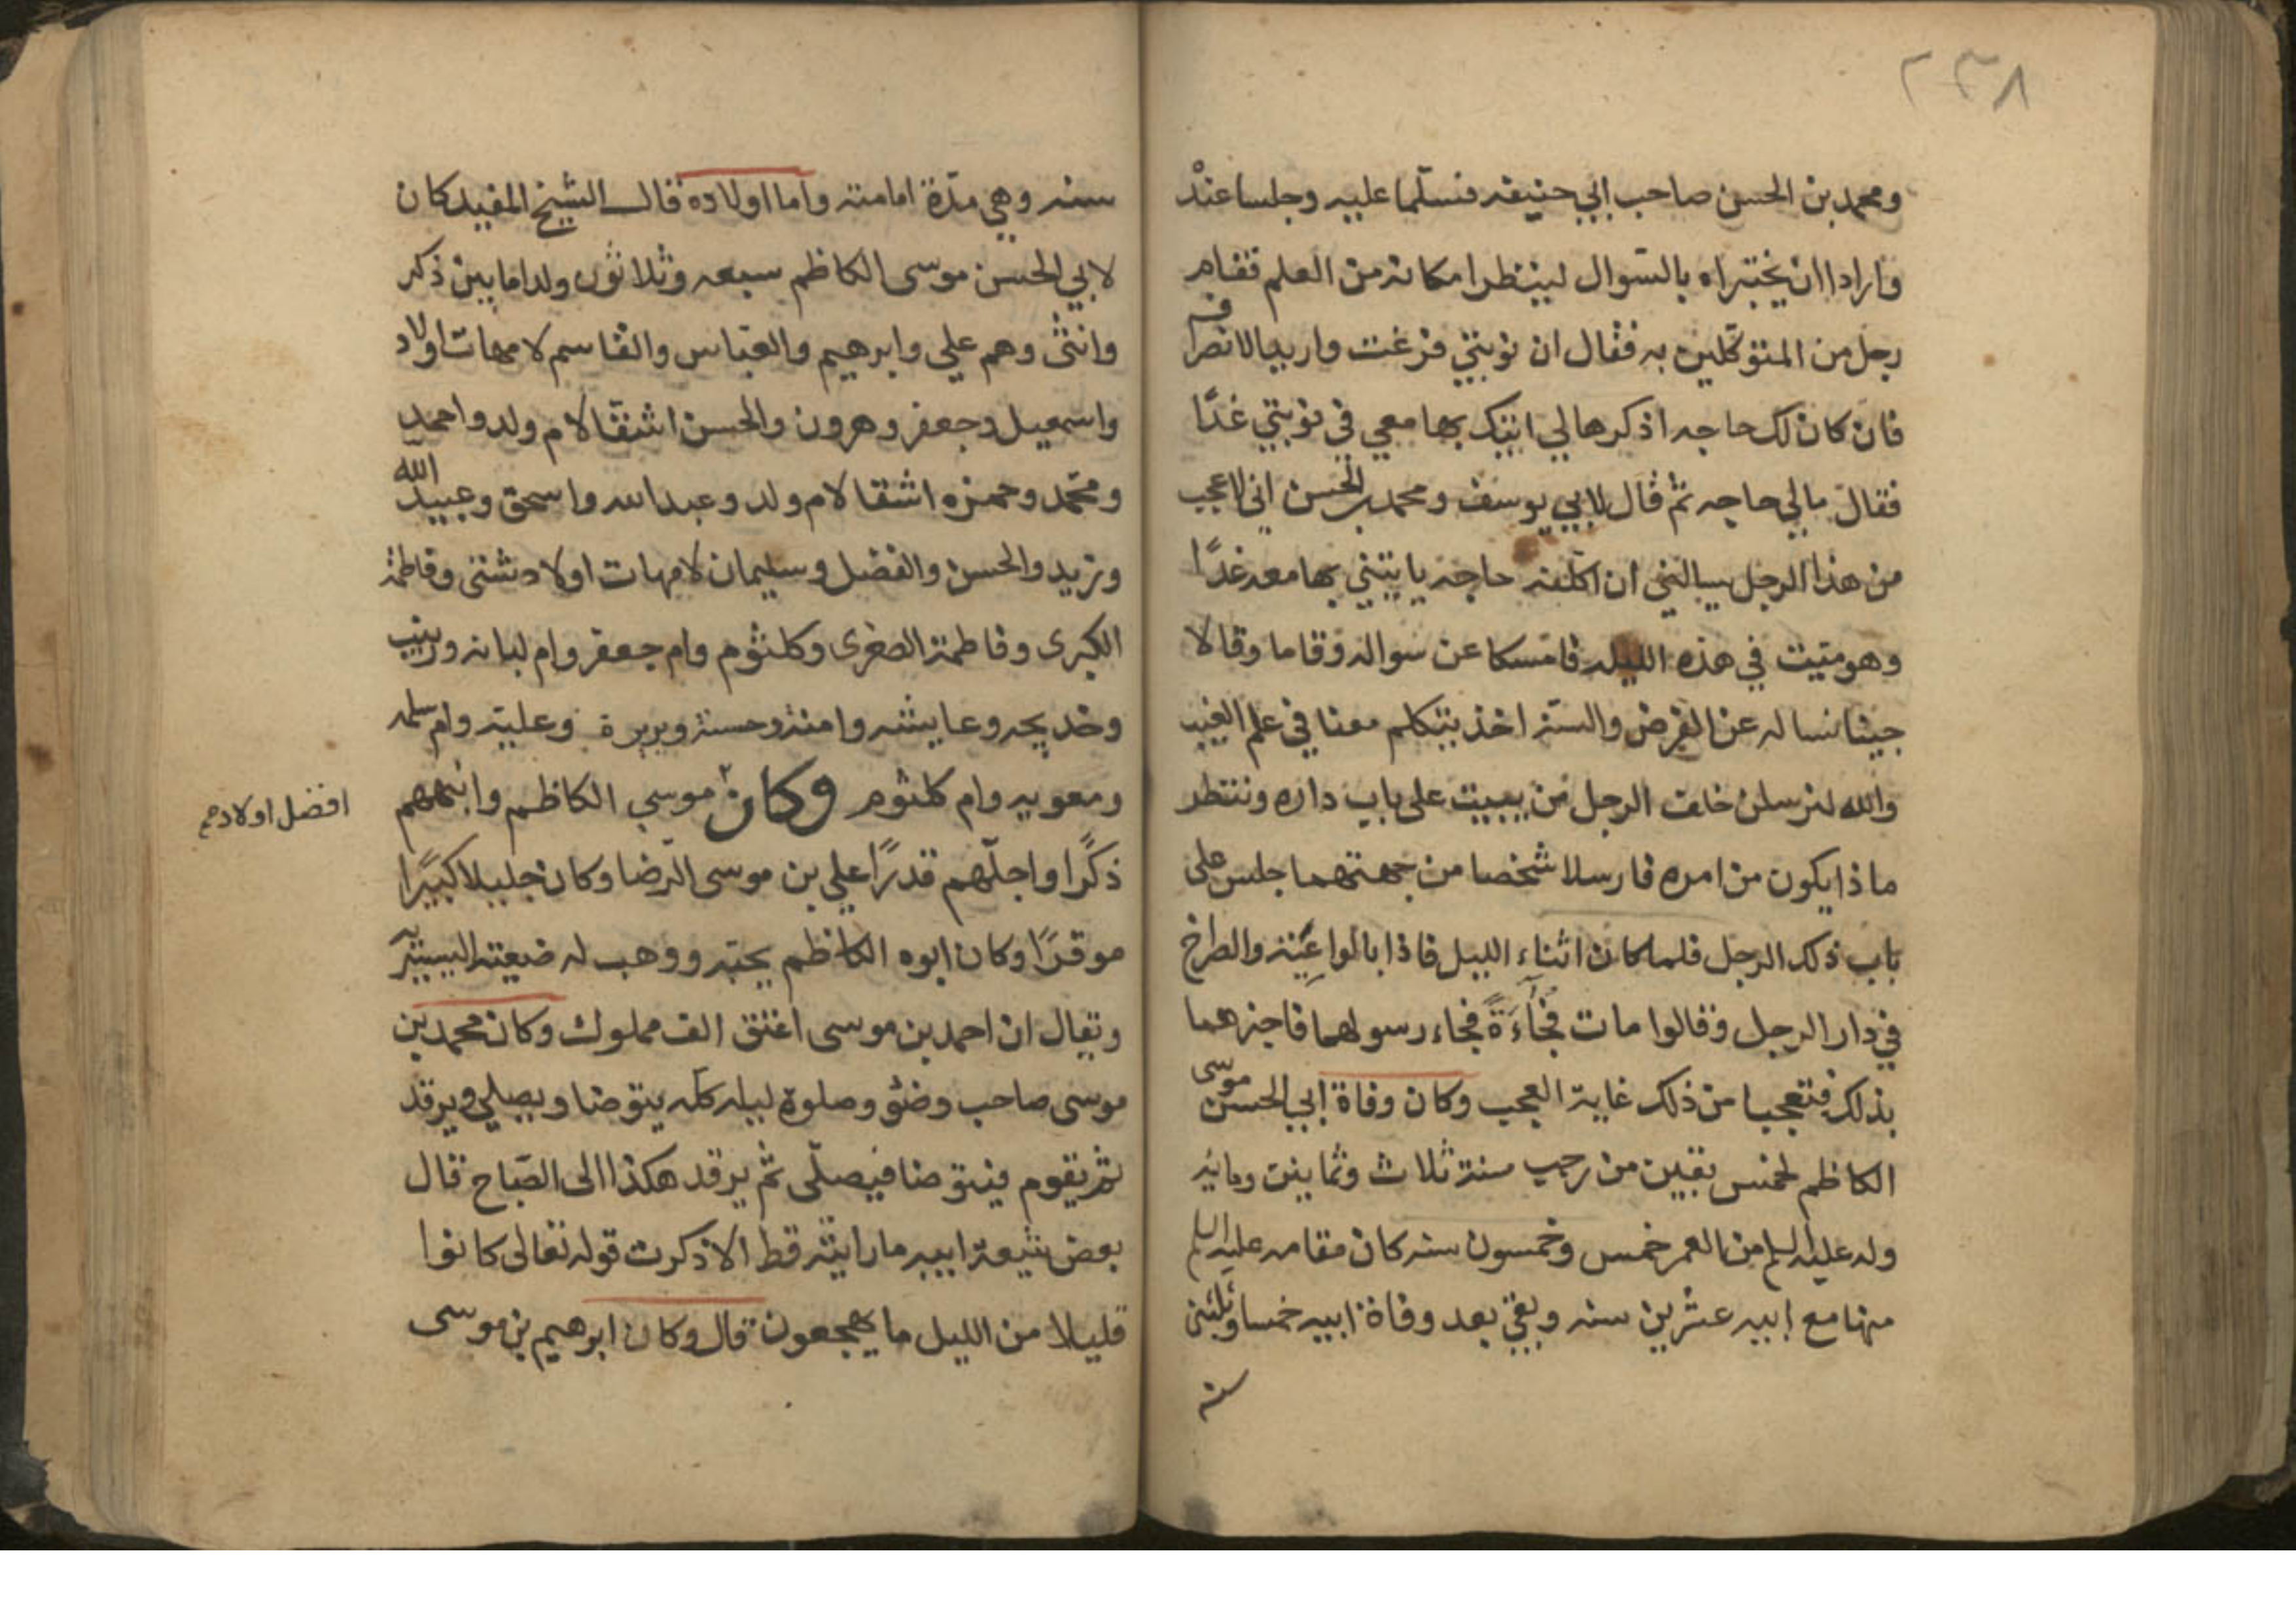 ٢٣٨
ومحمد بن الحسن صاحب ابي حنيفه فسلما عليه وجلسا عند
وارادا ان يختبراه بالسوال لينظرا مكانه من العلم فقام
رجل من المتوكلين به فقال ان نوبتي فرغت واريد الانصراف
فان كان لك حاجه اذكرها لي اتيك بها معي في نوبتي غدًا
فقال مالي حاجه ثم قال لابي يوسف ومحمد بن الحسن اني لاعجب
من هذا الرجل يسالني ان اكلفه حاجه ياتيني بها معه غدًا
وهو ميت في هذه الليله فامسكا عن سواله وقاما وقالا
جينا نساله عن الفرض والسنة اخذ يتكلم معنا في علم الغيب
والله لنرسلن خلف الرجل من يبيت على باب داره وننتظر
ماذا يكون من امره فارسلا شخصا من جهتهما جلس على
باب ذلك الرجل فلما كان اثناء الليل فاذا بالواعية والصراخ
في دار الرجل وقالوا مات فجاءةً فجاء رسولهما فاخبرهما
بذلك فتعجبا من ذلك غاية العجب وكان وفاة ابي الحسن موسى
الكاظم لخمس بقين من رجب سنة ثلاث وثمانين ومائه
وله عليه السلم من العمر خمس وخمسون سنه كان مقامه عليه السلم
منها مع ابيه عشرين سنه وبقي بعد وفاة ابيه خمسا وثلثين
سنه
سنه وهي مدة امامته واما اولاده قال الشيخ المفيد كان
لابي الحسن موسى الكاظم سبعه وثلاثون ولدا ما بين ذكر
وانثى وهم علي وابرهيم والعباس والقاسم لامهات اولاد
واسمعيل وجعفر وهرون والحسن اشقا لام ولد واحمد
ومحمد وحمزه اشقا لام ولد وعبد الله واسحق وعبيد الله
وزيد والحسن والفضل وسليمان لامهات اولاد شتى وفاطمة
الكبرى وفاطمة الصغرى وكلثوم وام جعفر وام لبانه وزينب
وخديجه وعايشه وامنة وحسنة وبريرة وعلية وام سلمه
ومعويه وام كلثوم وكان موسي الكاظم وانبههم
افضل اولادهم
ذكرًا واجلّهم قدرًا علي بن موسى الرضا وكان جليلا كبيرًا
موقرًا وكان ابوه الكاظم يحبه ووهب له ضيعته اليسيرية
ويقال ان احمد بن موسى اعتق الف مملوك وكان محمد بن
موسى صاحب وضؤ وصلوة ليله كله يتوضا ويصلي ويرقد
ثم يقوم فيتوضا فيصلّى ثم يرقد هكذا الى الصباح قال
بعض شيعة ابيه ما رايته قط الا ذكرت قوله تعالى كانوا
قليلا من الليل ما يهجعون قال وكان ابرهيم بن موسى